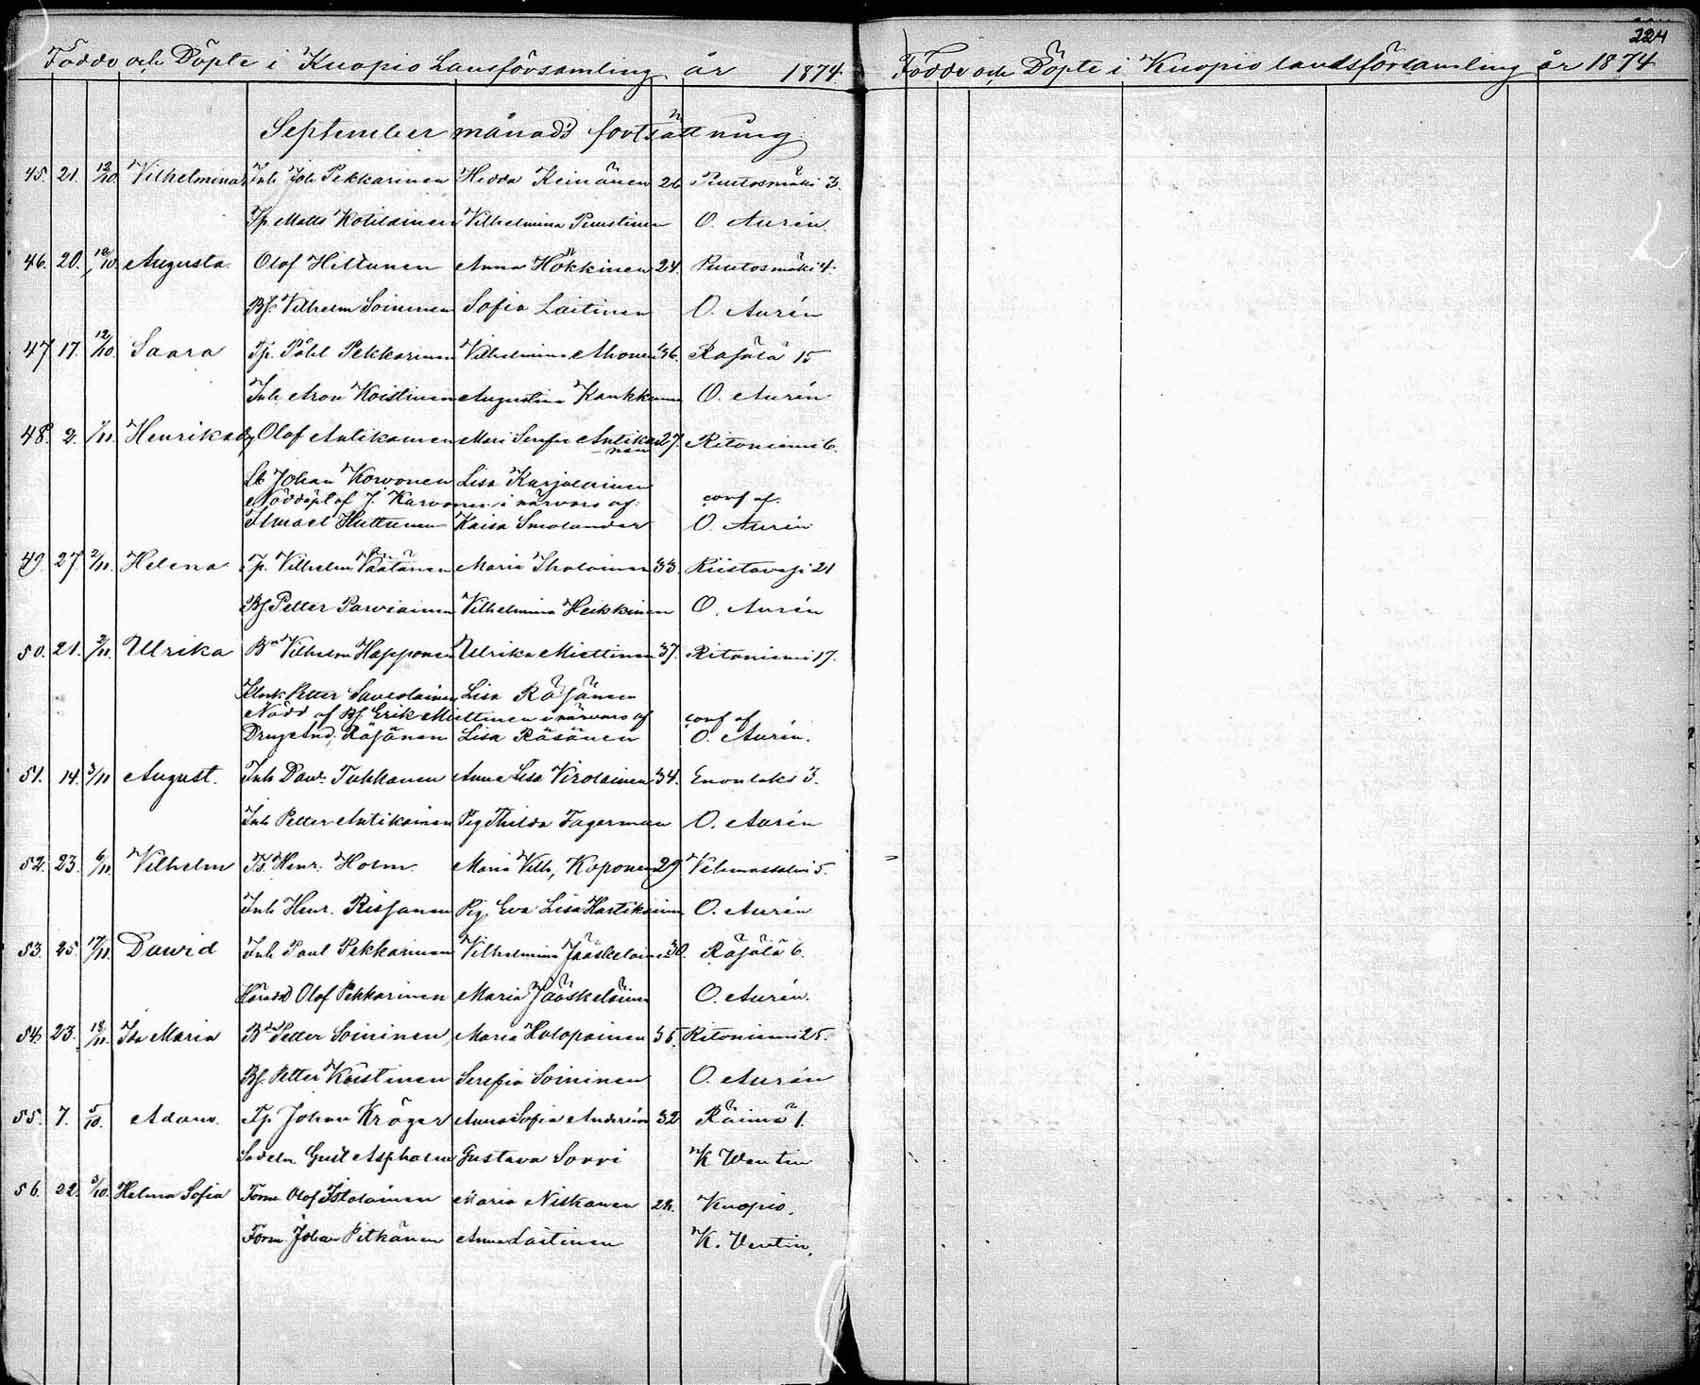 Födde och Döpte i Kuopio Lansförsamling år 1874.
September månads fortsättning
45. 21. 12/10 Vilhelmina Inh Joh Pekkarinen Hedda Keinänen 26 Puutosmäki 3.
Tp Matts Kotilainen Vilhelmina Puustinen O. Aurén
46. 20. 10/10. Augusta Olof Hiltunen Anna Hökkinen 24. Puutosmäki 4.
Bf. Vilhelm Soininen Sofia Laitinen O. Aurén
47 17. 12/10. Saara Tp. Påhl Pekkarinen Vilhelmina Ahonen 36. Räsälä 15
Inh Aron Koistinen Augustina Kaukkunen O. Aurén
48. 2. 1/11. Henrika Olof Antikainen Mari Serefia Antikainen 27. Ritoniemi 6.
Johan Korvonen Lisa Karjalainen
Nöddöpt af J. Karvonen i närvaro af conf af.
Ismael Huttunen Kaisa Smolander O. Aurén
49. 27 2/11. Helena Tp. Vilhelm Väätänen Maria Iholainen 33. Riistavesi 21
Bf Petter Parviainen Vilhelmina Heikkinen O. Aurén
50. 21. 2/11. Ulrika Bn Vilhelm Happonen Ulrika Miettinen 37. Ritoniemi 17.
Petter Savolainen Lisa Räsänen
Nödd af Bf Erik Miettinen i närvaro af conf af
Dreng And. Räsänen Lisa Räsänen O. Aurén.
51. 14. 3/11 August. Inh Dav. Tukkanen Anna Lisa Virolainen 34. Enonlaks 3.
Inh Petter Antikainen Pig Thilda Fagerman O. Aurén
52. 23. 6/11. Vilhelm Henr. Holm. Maria Vilh, Koponen 29 Vehmassalmi 5.
Inh Henr. Rissanen Pig. Eva Lisa Hartikainen O. Aurén
53. 25. 17/11. David Inh Paul Pekkarinen Vilhelmina Jääskeläinen 30. Räsälä 6.
Olof Pekkarinen Maria Jääskeläinen O. Aurén.
54 23. 18/11. Ida Maria Petter Soininen Maria Holopainen 35. Ritoniemi 25.
Bf. Petter Koistinen Serefia Soininen O. Aurén
55. 7. 5/10. Adam. Tp Johan Kröger Anna Sofia Andersin 32 Räimä 1.
Gust Aspholm Gustava Sorri K Wentin
56. 22. 5/10. Helena Sofia Torm Olof Itkolainen Maria Niskanen 28. Kuopio.
Torm Johan Pitkänen Anna Laitinen K. Ventin,
224
Födde och Döpte i Kuopio landsförsamling år 1874